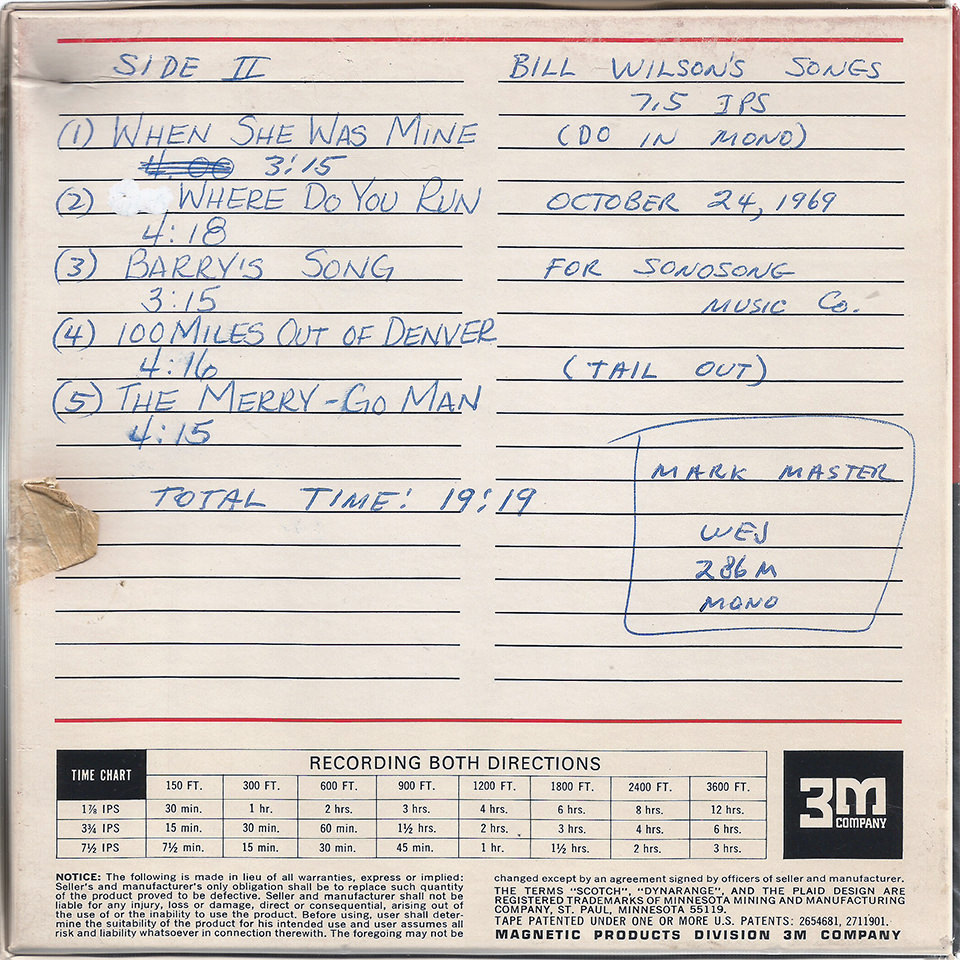 SIDE II
(1) WHEN SHE WAS MINE
4:00 3:15
(2) WHERE DO YOU RUN
4:18
(3) BARRY'S SONG
3:15
(4) 100 MILES OUT OF DENVER
4:16
(5) THE MERRY-GO MAN
4:15
TOTAL TIME: 19:19
BILL WILSON'S SONGS
7.5 IPS
(DO IN MONO)
OCTOBER 24, 1969
FOR SONOSONG
MUSIC CO.
(TAIL OUT)
MARK MASTER
WEJ
286M
MONO
TIME CHART
RECORDING BOTH DIRECTIONS
150 FT. 300 FT. 600 FT. 900 FT. 1200 FT. 1800 FT. 2400 FT. 3600 FT.
1⅞ IPS 30 min. 1 hr. 2 hrs. 3 hrs. 4 hrs. 6 hrs. 8 hrs. 12 hrs.
3¾ IPS 15 min. 30 min. 60 min. 1½ hrs. 2 hrs. 3 hrs. 4 hrs. 6 hrs.
7½ IPS 7½ min. 15 min. 30 min. 45 min. 1 hr. 1½ hrs. 2 hrs. 3 hrs.
3M
COMPANY
NOTICE: The following is made in lieu of all warranties, express or implied:
Seller's and manufacturer's only obligation shall be to replace such quantity
of the product proved to be defective. Seller and manufacturer shall not be
liable for any injury, loss or damage, direct or consequential, arising out of
the use of or the inability to use the product. Before using, user shall deter-
mine the suitability of the product for his intended use and user assumes all
risk and liability whatsoever in connection therewith. The foregoing may not be
changed except by an agreement signed by officers of seller and manufacturer.
THE TERMS "SCOTCH", "DYNARANGE", AND THE PLAID DESIGN ARE
REGISTERED TRADEMARKS OF MINNESOTA MINING AND MANUFACTURING
COMPANY, ST. PAUL, MINNESOTA 55119.
TAPE PATENTED UNDER ONE OR MORE U.S. PATENTS: 2654681, 2711901.
MAGNETIC PRODUCTS DIVISION 3M COMPANY